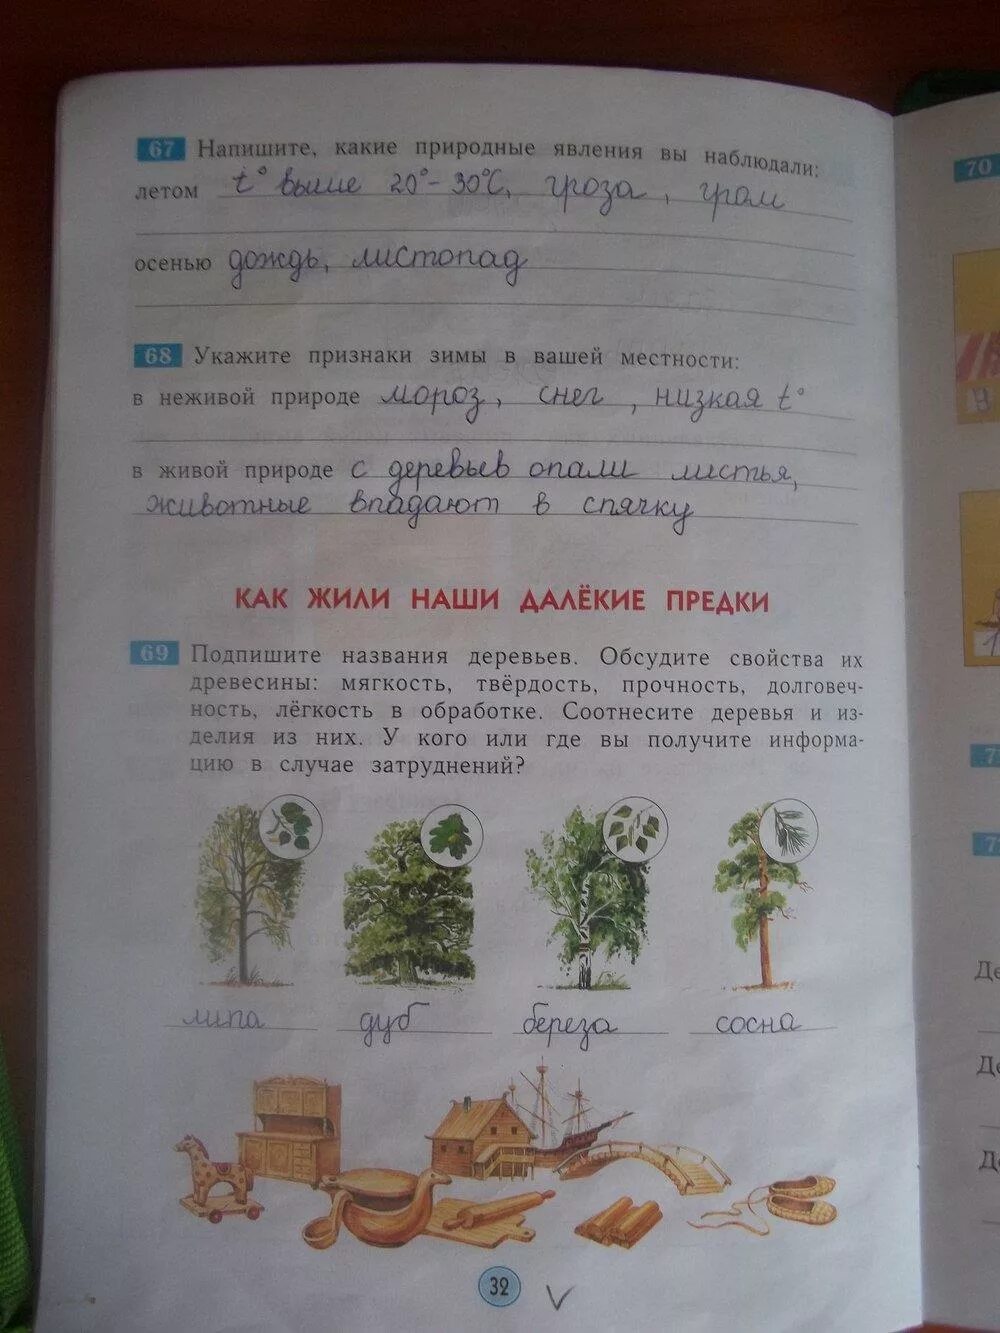 67 Напишите, какие природные явления вы наблюдали:
летом t° выше 20°-30°С, гроза, гром
осенью дождь, листопад
68 Укажите признаки зимы в вашей местности:
в неживой природе мороз, снег, низкая t°
в живой природе с деревьев опали листья,
животные впадают в спячку
КАК ЖИЛИ НАШИ ДАЛЁКИЕ ПРЕДКИ
69 Подпишите названия деревьев. Обсудите свойства их
древесины: мягкость, твёрдость, прочность, долговеч-
ность, лёгкость в обработке. Соотнесите деревья и из-
делия из них. У кого или где вы получите информа-
цию в случае затруднений?
липа дуб береза сосна
32
70
Де
Де